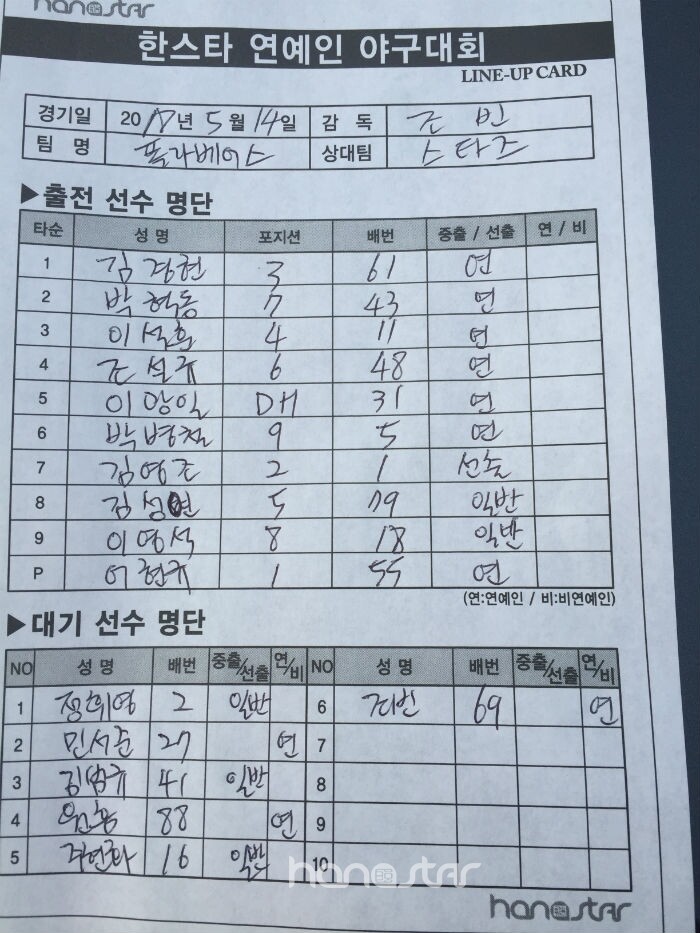 hanastar
한스타 연예인 야구대회
LINE-UP CARD
경기일 2017년 5월 14일 감 독 조 빈
팀 명 폴라베어스 상대팀 스타즈
▶출전 선수 명단
타순 성 명 포지션 배번 중출 / 선출 연 / 비
1 김경현 3 61 연
2 박혁동 7 43 연
3 이석훈 4 11 연
4 조설규 6 48 연
5 이앙일 DH 31 연
6 박병철 9 5 연
7 김영조 2 1 선출
8 김성현 5 79 일반
9 이영석 8 18 일반
P 이현규 1 55 연
(연:연예인 / 비:비연예인)
▶대기 선수 명단
NO 성 명 배번 중출/선출 연/비 NO 성 명 배번 중출/선출 연/비
1 정휘영 2 일반 6 조빈 69 연
2 민서준 27 연 7
3 김범규 41 일반 8
4 88 연 9
5 16 일반 10
hanastar
hanastar